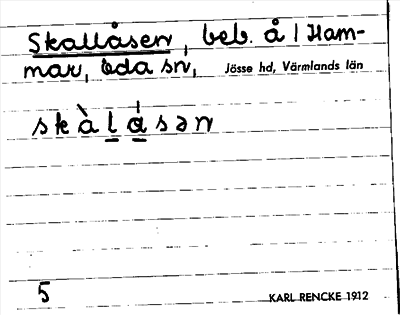 Skallåsen, beb. å l Ham-
mar, Eda sn, Jösse hd, Värmlands län
skàlåsən
5 KARL RENCKE 1912